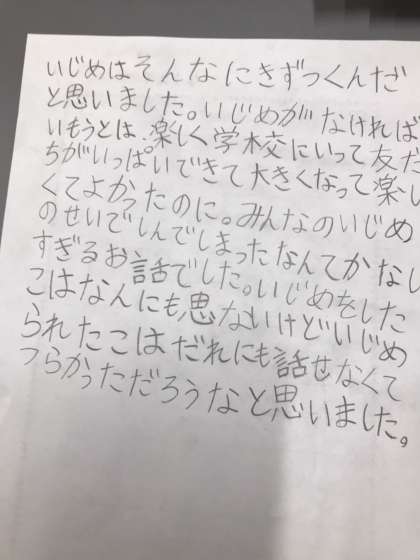 いじめはそんなにきずつくんだ
と思いました。いじめがなければ
いもうとは、楽しく学校にいって友だ
ちがいっぱいできて大きくなって楽し
くてよかったのに。みんなのいじめ
のせいでしんでしまったなんてかなし
すぎるお話でした。いじめをした
こはなんにも思ないけどいじめ
られたこはだれにも話せなくて
つらかっただろうなと思いました。